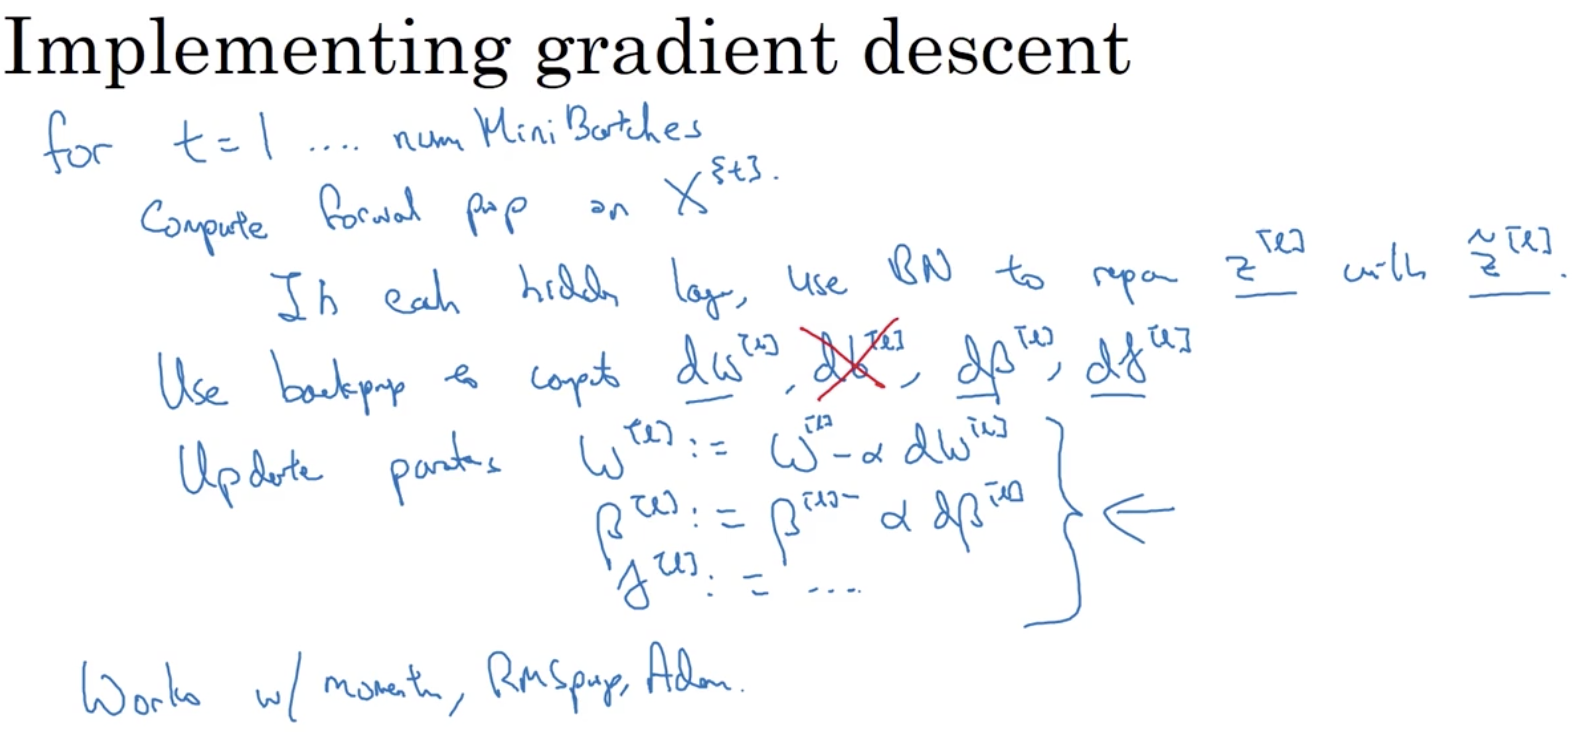 Implementing gradient descent
for t = 1 .... num Mini Batches
Compute forward prop on X^{t}.
In each hidden lay, use BN to repa z^[l] with z̃^[l].
Use backprop to compt dw^[l], db^[l], dβ^[l], dγ^[l]
Update W^[l] := W^[l] - α dW^[l]
β^[l] := β^[l] - α dβ^[l]
γ^[l] := ....
Works w/ momentm, RMSprop, Adam.